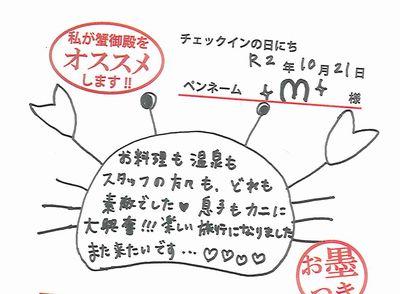 私が蟹御殿を
オススメ
します!!
チェックインの日にち
R2年10月21日
ペンネーム +m+ 様
お料理も温泉も
スタッフの方々も、どれも
素敵でした♥ 息子もカニに
大興奮!!! 楽しい旅行になりました
また来たいです…♡♡♡♡
お墨
つき